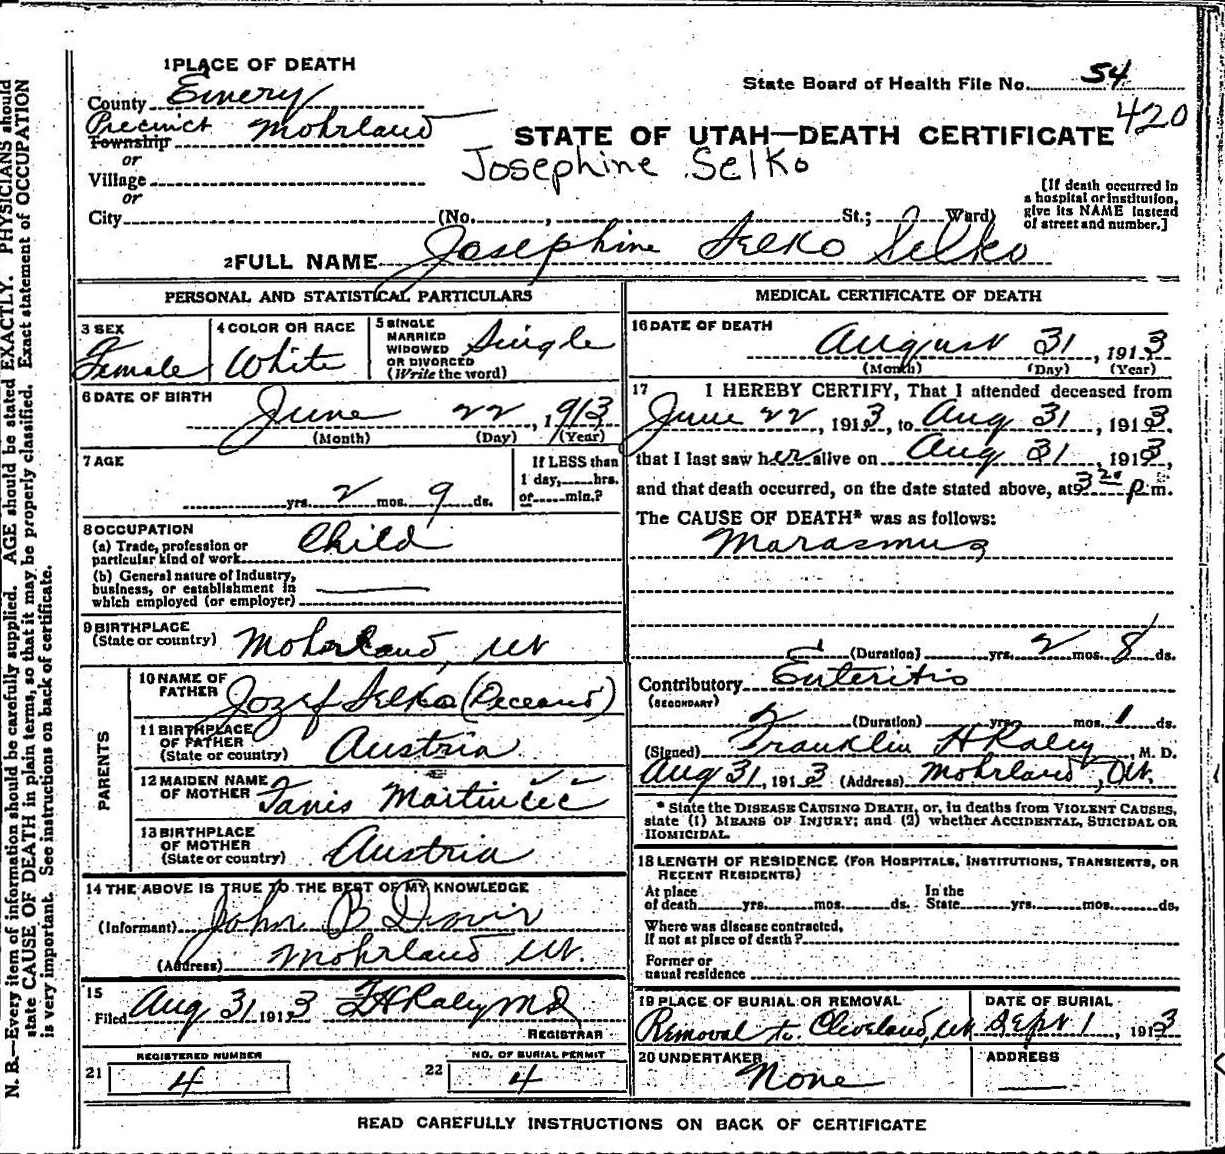 1 PLACE OF DEATH
County Emery
State Board of Health File No. 54
420
Precinct Mohrland
Township
or
STATE OF UTAH—DEATH CERTIFICATE
Josephine Selko
Village
or
City (No. , St.; Ward)
[If death occurred in
a hospital or institution,
give its NAME instead
of street and number.]
2 FULL NAME Josephine Selko Selko
PERSONAL AND STATISTICAL PARTICULARS
3 SEX
Female
4 COLOR OR RACE
White
5 SINGLE
MARRIED
WIDOWED
OR DIVORCED
(Write the word)
Single
6 DATE OF BIRTH
June 22, 1913
(Month) (Day) (Year)
7 AGE
yrs. 2 mos. 9 ds.
If LESS than
1 day, hrs.
or min.?
8 OCCUPATION
(a) Trade, profession or
particular kind of work Child
(b) General nature of Industry,
business, or establishment in
which employed (or employer)
9 BIRTHPLACE
(State or country) Mohrland, Ut
PARENTS
10 NAME OF
FATHER Jozef Selko (Deceased)
11 BIRTHPLACE
OF FATHER
(State or country) Austria
12 MAIDEN NAME
OF MOTHER Martinčič
13 BIRTHPLACE
OF MOTHER
(State or country) Austria
14 THE ABOVE IS TRUE TO THE BEST OF MY KNOWLEDGE
(Informant) John B
(Address) Mohrland Ut.
15
Filed Aug 31, 1913 F H Raley MD
REGISTRAR
REGISTERED NUMBER
21 4
NO. OF BURIAL PERMIT
22 4
MEDICAL CERTIFICATE OF DEATH
16 DATE OF DEATH
August 31, 1913
(Month) (Day) (Year)
17 I HEREBY CERTIFY, That I attended deceased from
June 22, 1913, to Aug 31, 1913,
that I last saw her alive on Aug 31, 1913,
and that death occurred, on the date stated above, at 3 20 p m.
The CAUSE OF DEATH* was as follows:
Marasmus
(Duration) yrs. 2 mos. 8 ds.
Contributory Enteritis
(SECONDARY)
(Duration) yrs. mos. 1 ds.
(Signed) Franklin H Raley, M. D.
Aug 31, 1913 (Address) Mohrland, Ut.
* State the DISEASE CAUSING DEATH, or, in deaths from VIOLENT CAUSES,
state (1) MEANS OF INJURY; and (2) whether ACCIDENTAL, SUICIDAL OR
HOMICIDAL.
18 LENGTH OF RESIDENCE (FOR HOSPITALS, INSTITUTIONS, TRANSIENTS, OR
RECENT RESIDENTS)
At place
of death yrs. mos. ds.
In the
State yrs. mos. ds.
Where was disease contracted,
if not at place of death?
Former or
usual residence
19 PLACE OF BURIAL OR REMOVAL
Removal to Cleveland, Ut
DATE OF BURIAL
Sept 1, 1913
20 UNDERTAKER
None
ADDRESS
READ CAREFULLY INSTRUCTIONS ON BACK OF CERTIFICATE
N. B.—Every item of information should be carefully supplied. AGE should be stated EXACTLY. PHYSICIANS should
state CAUSE OF DEATH in plain terms, so that it may be properly classified. Exact statement of OCCUPATION
is very important. See instructions on back of certificate.